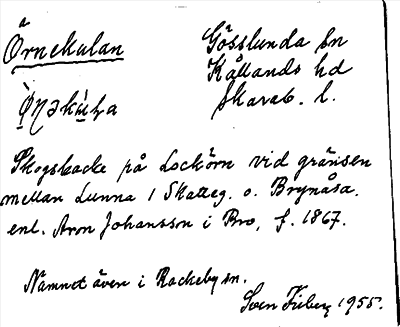 Örnekulan
Gösslunda sn
Kållands hd
Skarab. l.
Skogsbacke på Lockörn vid gränsen
mellan Lunna 1 Skatteg. o. Brynåsa.
enl. Aron Johansson i Bro, f. 1867.
Namnet även i Rackeby sn.
Sven 1955.